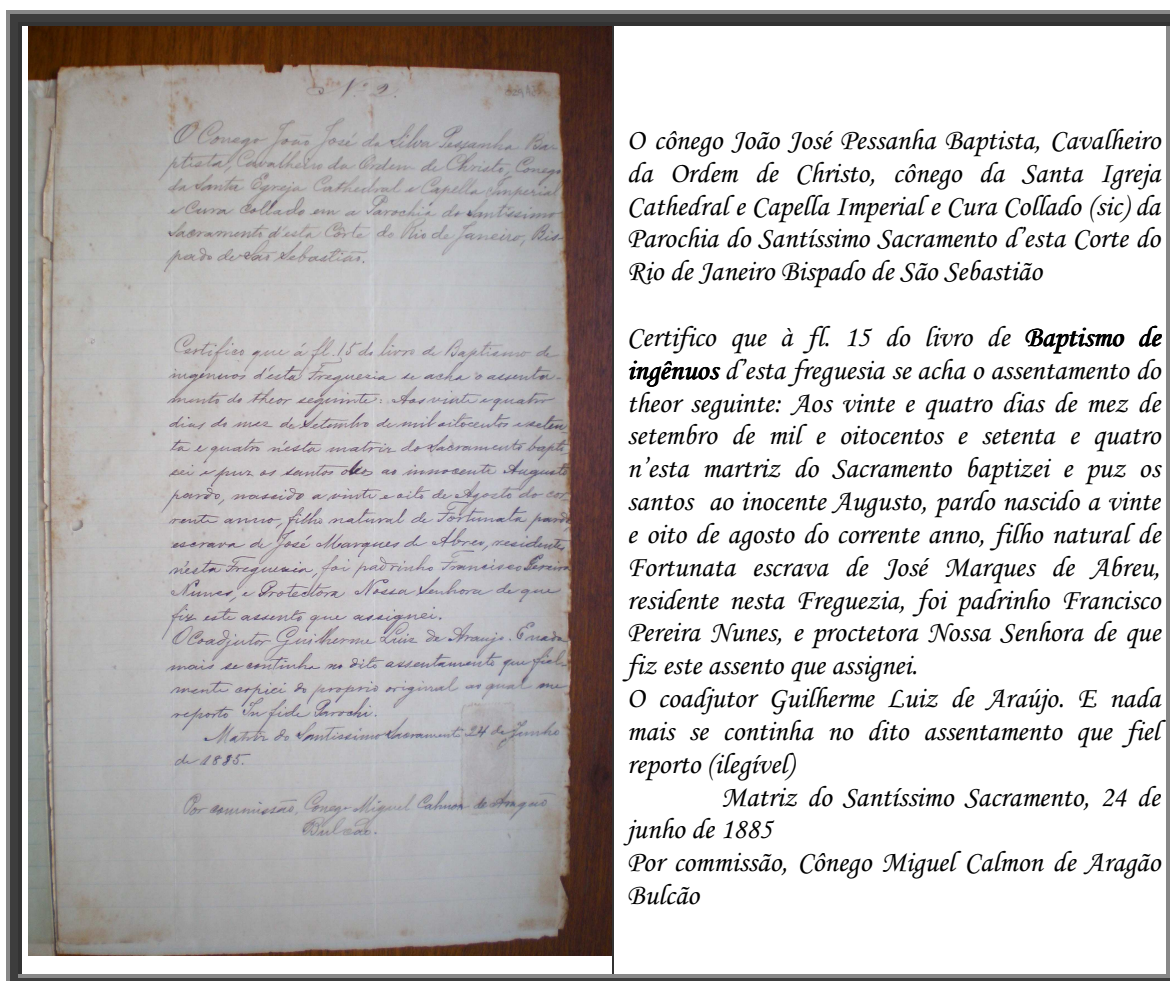 Nº 2.
O Conego João José da Silva Pessanha Ba-
ptista, Cavalheiro da Ordem de Christo, Conego
da Santa Egreja Cathedral e Capella imperial
e Cura Collado em a Parochia do Santissimo
Sacramento d'esta Côrte do Rio de Janeiro, Bis-
pado de São Sebastião.
Certifico que á fl. 15 do livro de Baptismo de
ingenuos d'esta Freguezia se acha o assenta-
mento do theor seguinte: Aos vinte e quatro
dias do mez de Setembro de mil oitocentos e seten-
ta e quatro n'esta matriz do Sacramento bapti
sei e puz os santos oleos ao innocente Augusto
pardo, nascido a vinte e oito de Agosto do cor-
rente anno, filho natural de Fortunata parda
escrava de José Marques de Abreo, residente
n'esta Freguezia, foi padrinho Francisco Pereira
Nunes, e Protectora Nossa Senhora de que
fiz este assento que assignei.
O Coadjutor Guilherme Luiz de Araujo. E nada
mais se continha no dito assentamento que fiel-
mente copiei do proprio original ao qual me
reporto In fide Parochi.
Matriz do Santissimo Sacramento 24 de Junho
de 1885.
Por commissão, Conego Miguel Calmon de Aragão
Bulcão.
O cônego João José Pessanha Baptista, Cavalheiro
da Ordem de Christo, cônego da Santa Igreja
Cathedral e Capella Imperial e Cura Collado (sic) da
Parochia do Santíssimo Sacramento d'esta Corte do
Rio de Janeiro Bispado de São Sebastião
Certifico que à fl. 15 do livro de Baptismo de
ingênuos d'esta freguesia se acha o assentamento do
theor seguinte: Aos vinte e quatro dias de mez de
setembro de mil e oitocentos e setenta e quatro
n'esta martriz do Sacramento baptizei e puz os
santos ao inocente Augusto, pardo nascido a vinte
e oito de agosto do corrente anno, filho natural de
Fortunata escrava de José Marques de Abreu,
residente nesta Freguezia, foi padrinho Francisco
Pereira Nunes, e proctetora Nossa Senhora de que
fiz este assento que assignei.
O coadjutor Guilherme Luiz de Araújo. E nada
mais se continha no dito assentamento que fiel
reporto (ilegível)
Matriz do Santíssimo Sacramento, 24 de
junho de 1885
Por commissão, Cônego Miguel Calmon de Aragão
Bulcão